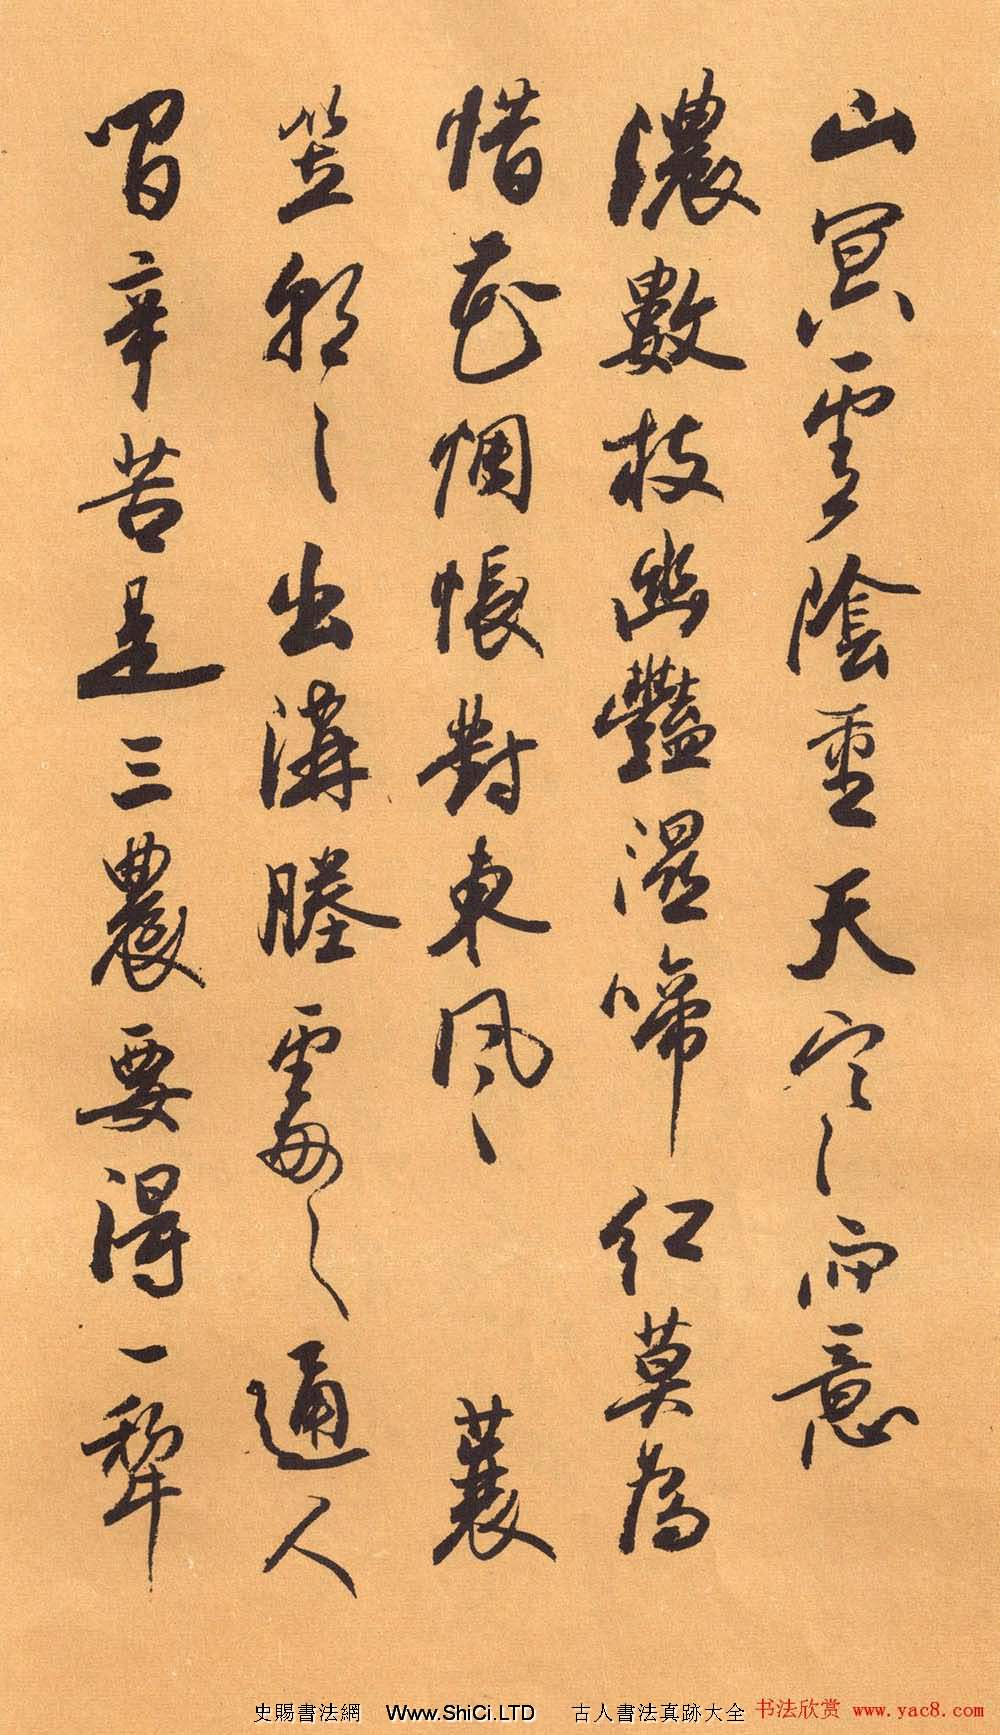 山冥雲陰重天寒〻雨意
濃數枝幽豔濕啼紅莫為
惜花惆悵對東風〻 蓑
笠朝〻出溝塍處〻通人
間辛苦是三農要得一犂
史賜書法網 Www.ShiCi.LTD 古人書法真跡大全 书法欣赏 www.yac8.com